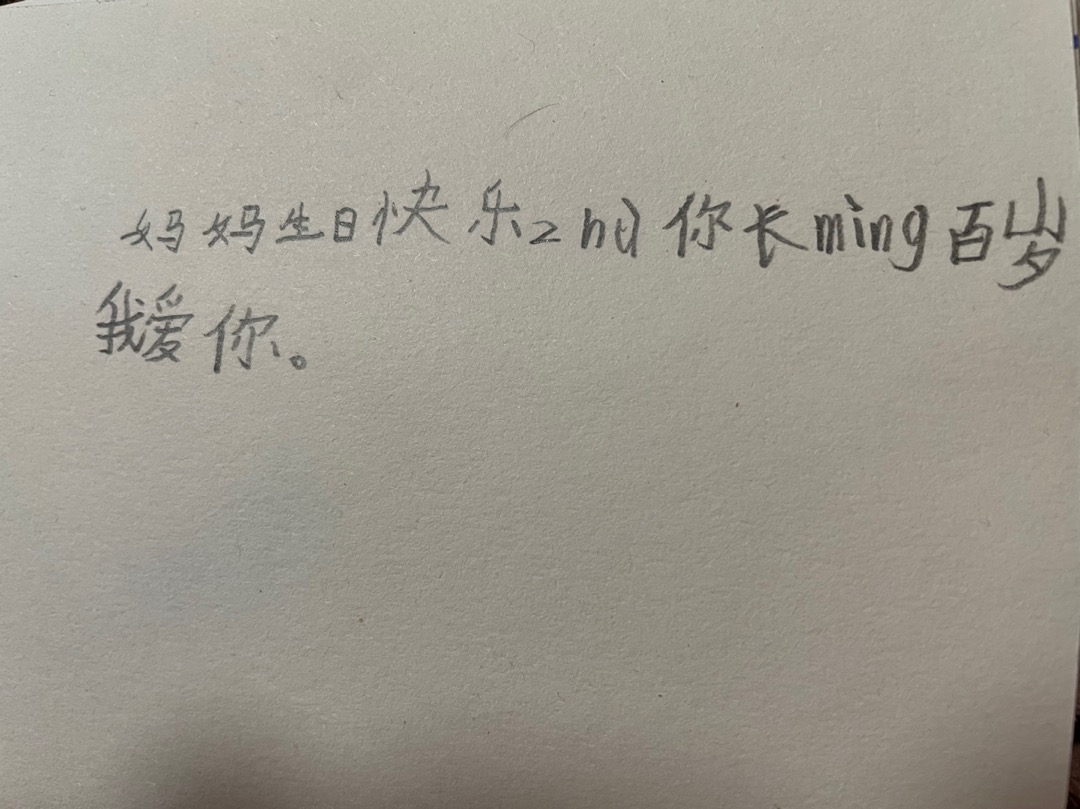 妈妈生日快乐zhù你长ming百岁
我爱你。